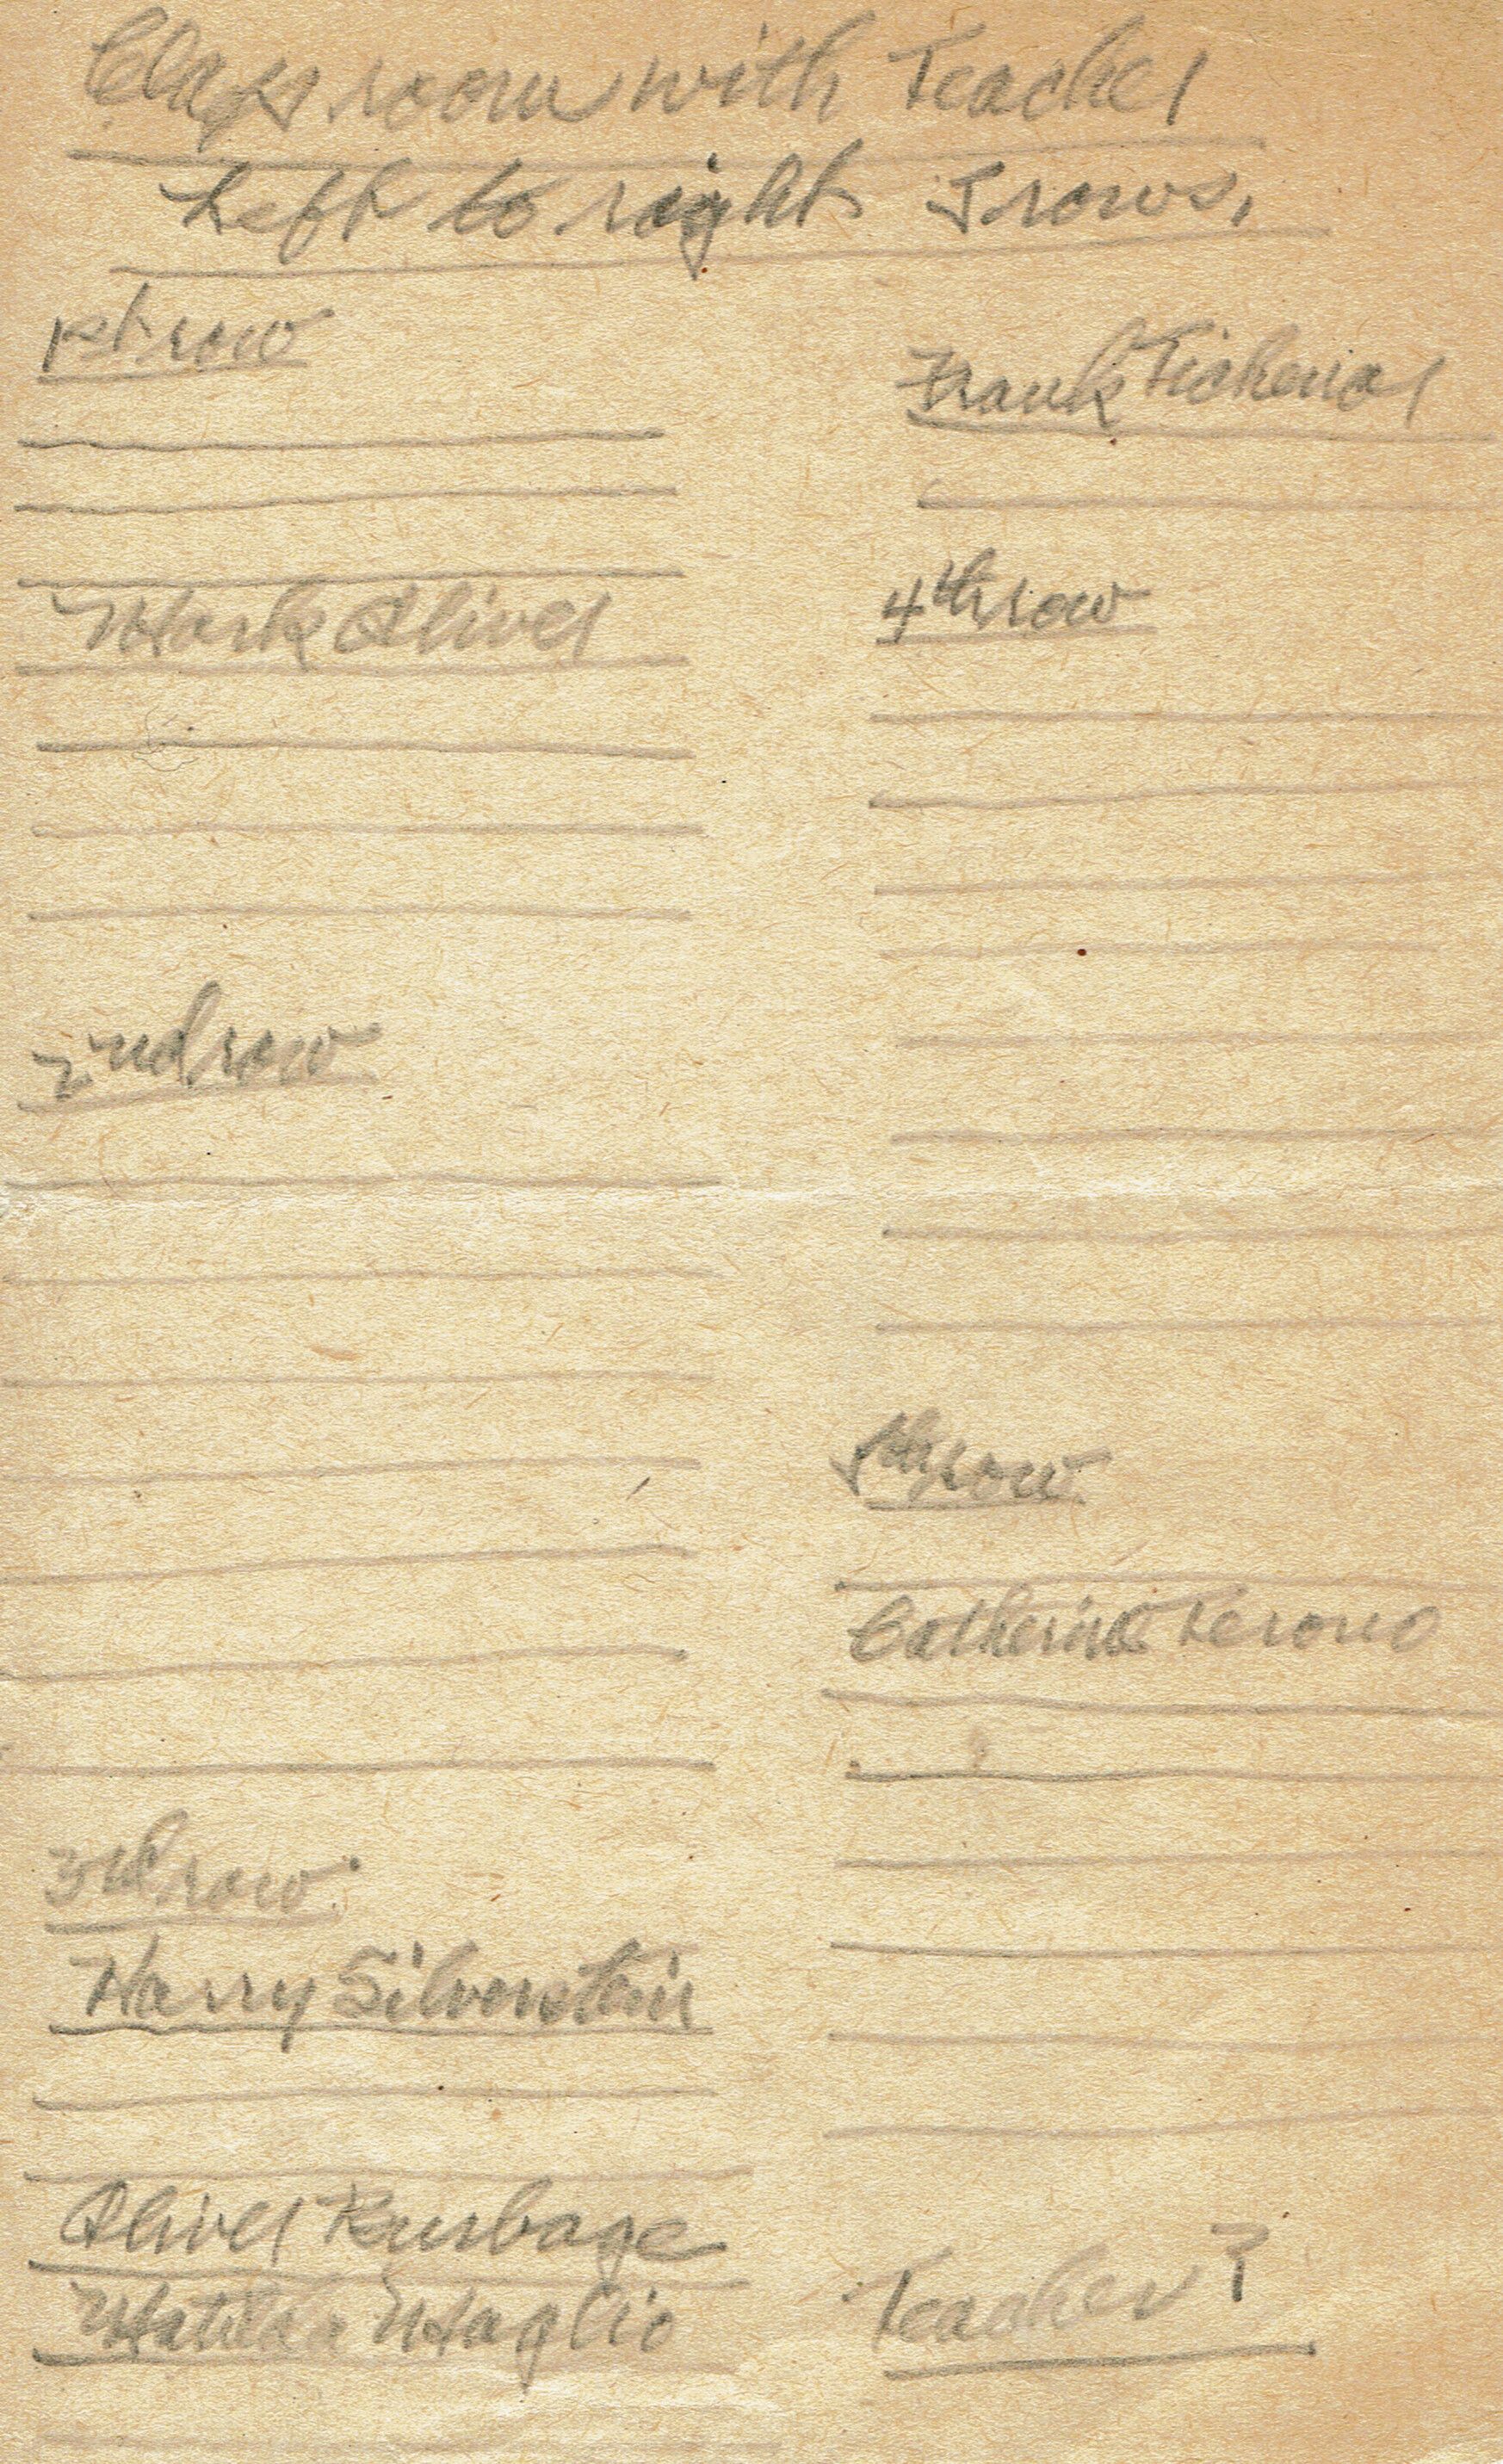 Class room with Teacher
Left to right 5 rows.
1st row
Mark Oliver
2nd row
3rd row
Harry Silverstein
Oliver Burbage
Matilda Maglio
Frank
4th row
5th row
Catherine
Teacher ?